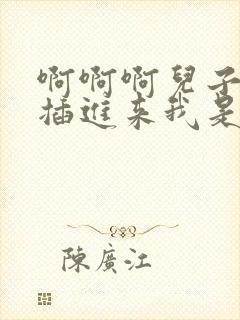 啊啊啊兒子
插進来我是
陳廣江